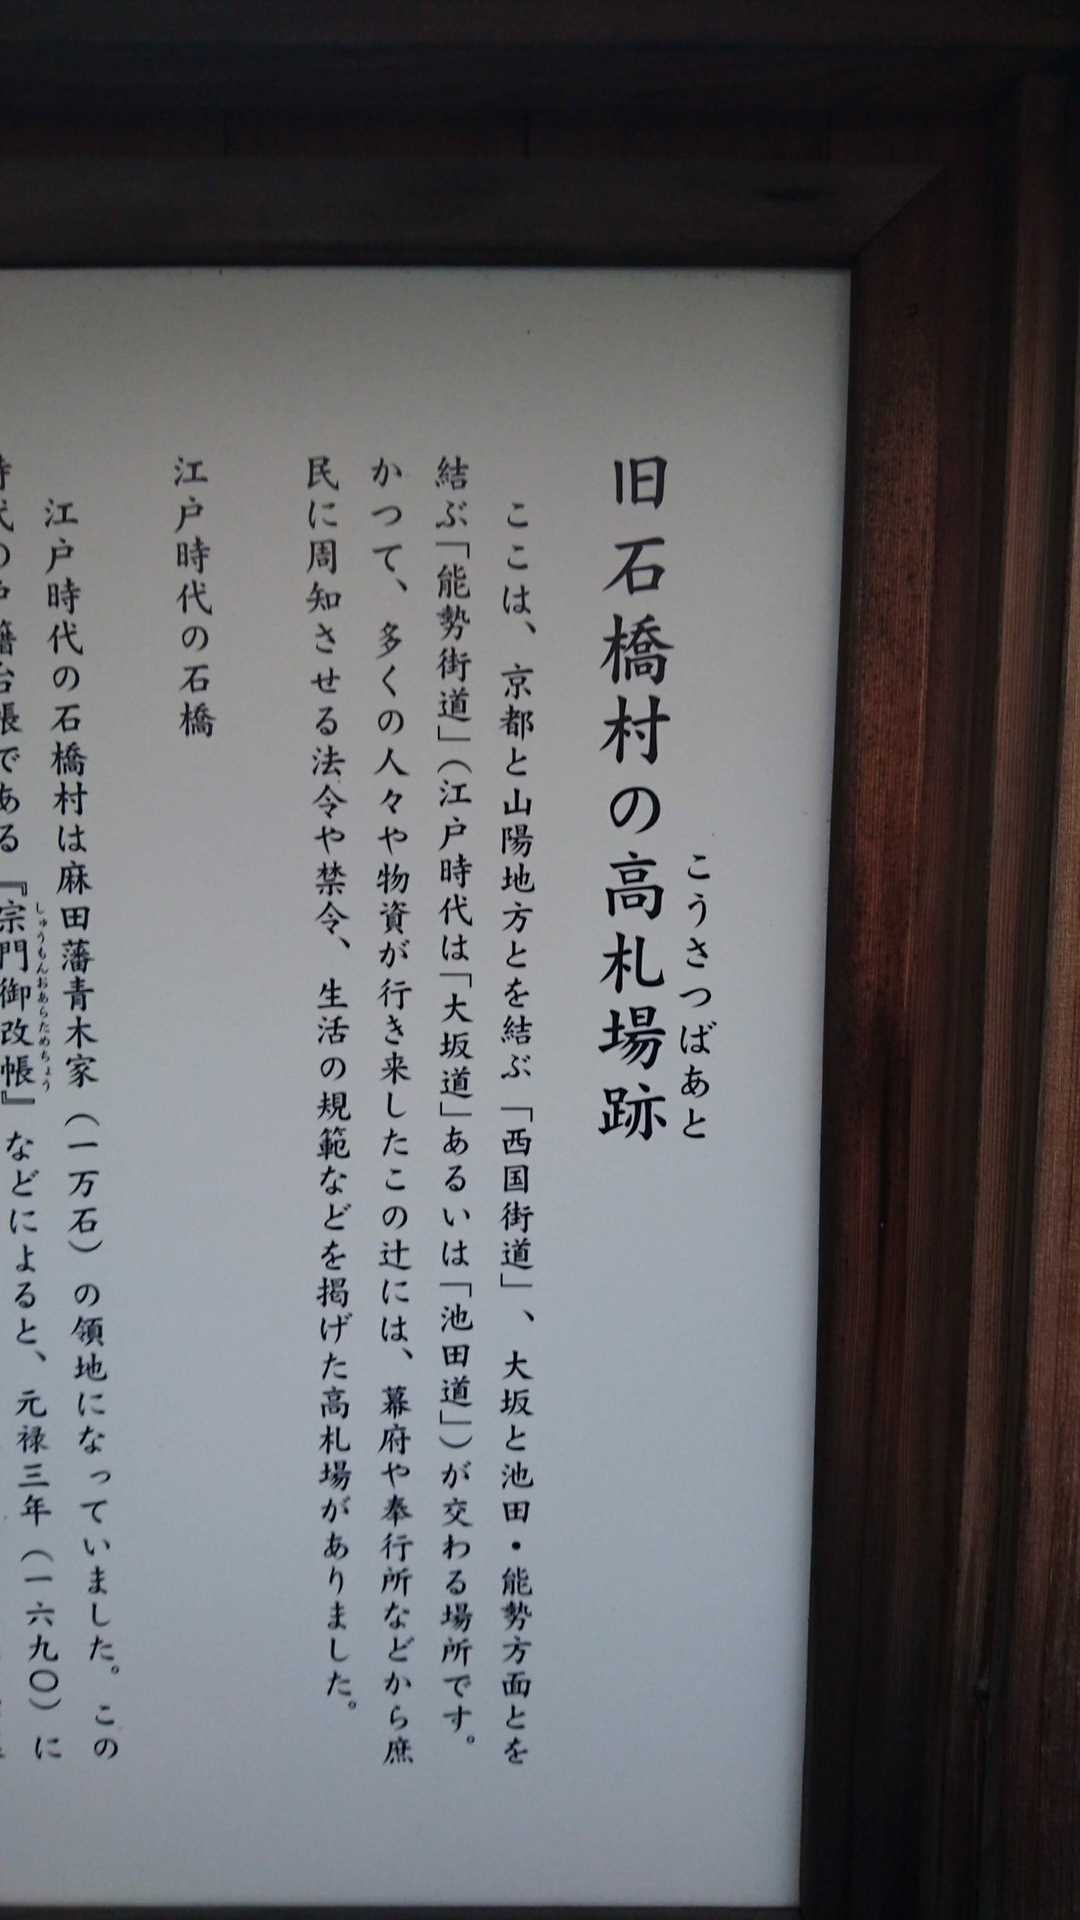 旧石橋村の高札場跡
こうさつばあと
ここは、京都と山陽地方とを結ぶ「西国街道」、大坂と池田・能勢方面とを
結ぶ「能勢街道」(江戸時代は「大坂道」あるいは「池田道」)が交わる場所です。
かつて、多くの人々や物資が行き来したこの辻には、幕府や奉行所などから庶
民に周知させる法令や禁令、生活の規範などを掲げた高札場がありました。
江戸時代の石橋
江戸時代の石橋村は麻田藩青木家(一万石)の領地になっていました。この
時代の戸籍台帳である『宗門御改帳』などによると、元禄三年(一六九〇)に
しゅうもんおあらためちょう